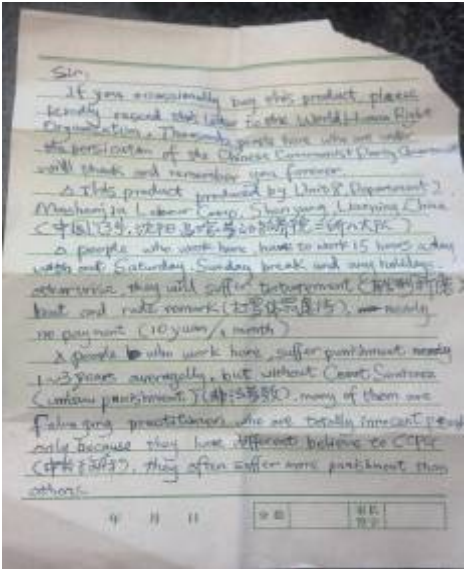 Sir,
If you occasionally buy this product, please
kindly resend this letter to the World Human Right
Organization. Thousands people here who are under
the persicution of the Chinese Communist Party Government
will thank and remember you forever.
△ This product produced by Unit 8, Department 2,
Masanjia Labour Camp, Shenyang, Liaoning, China
(中国,辽宁,沈阳,马三家劳动教养院二所八大队)
△ people who work here, have to work 15 hours a day
with out Saturday, Sunday break and any holidays
otherwise, they will suffer
beat and rude remark (打骂体罚虐待), nearly
no payment (10 yuan/1 month)
△ people who work here, suffer punishment nearly
1~3 years averagelly, but without Court Sentence
(unlaw punishment) (非法劳教), many of them are
Falun gong practitioner, who are totally innocent people
only because they have different believe to CCPG
they often suffer more punishment than
others.
年 月 日